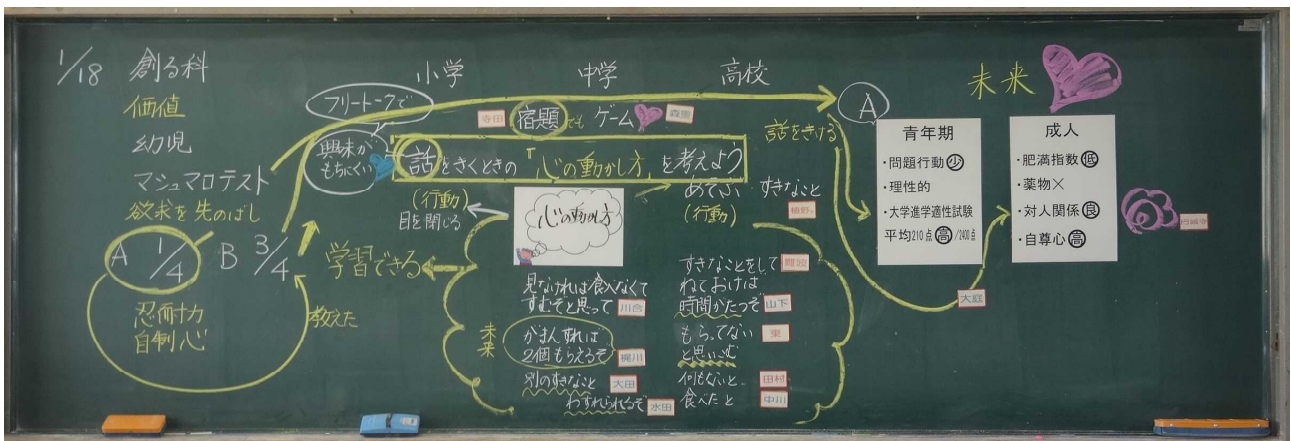 1/18 創る科
価値
幼児
マシュマロテスト
欲求を先のばし
A 1/4 B 3/4
忍耐力
自制心
教えた
学習できる
小学 中学 高校
フリートークで
興味が
もちにくい
寺田 宿題でも ゲーム 森重
話をきくときの「心の動かし方」を考えよう
(行動)
目を閉じる
心の動かし方
あそぶ すきなこと
(行動)
植野
見なければ食べなくて
すむぞと思って 川合
未来
がまんすれば
2個もらえるぞ 梶川
別のすきなこと 大田
わすれられるぞ 水田
すきなことをして 難波
ねておけば
時間がたつぞ 山下
もらってない 東
と思いこむ
何もないと 田村
食べたと 中川
A
話をきける
青年期
・問題行動少
・理性的
・大学進学適性試験
平均210点高/2400点
大庭
未来
成人
・肥満指数低
・薬物×
・対人関係良
・自尊心高
円城寺